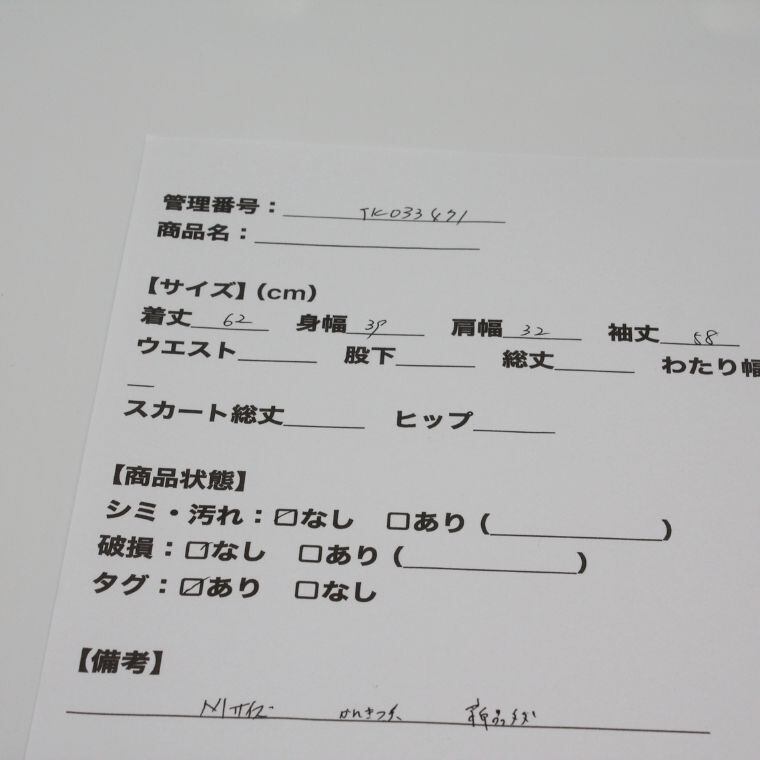 管理番号：TK033471
商品名：
【サイズ】(cm)
着丈 62 身幅 39 肩幅 32 袖丈 58
ウエスト 股下 総丈 わたり幅
スカート総丈 ヒップ
【商品状態】
シミ・汚れ：☑なし □あり（ ）
破損：☑なし □あり（ ）
タグ：☑あり □なし
【備考】
サイズ